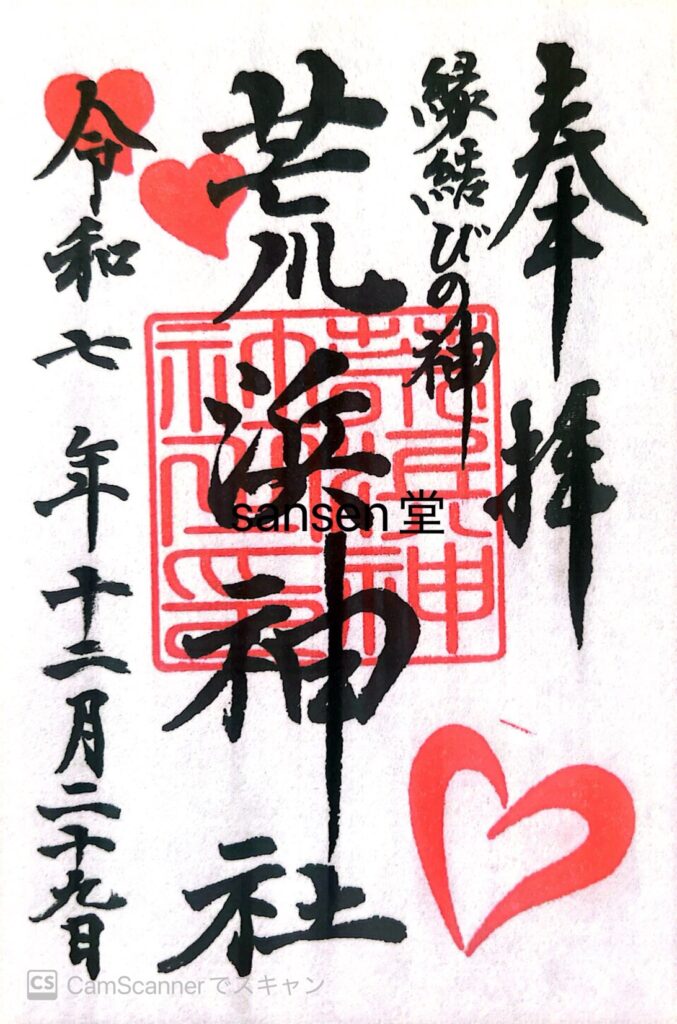 奉拝
縁結びの神
荒浜神社
令和七年十二月二十九日
sansen堂
CS CamScannerでスキャン